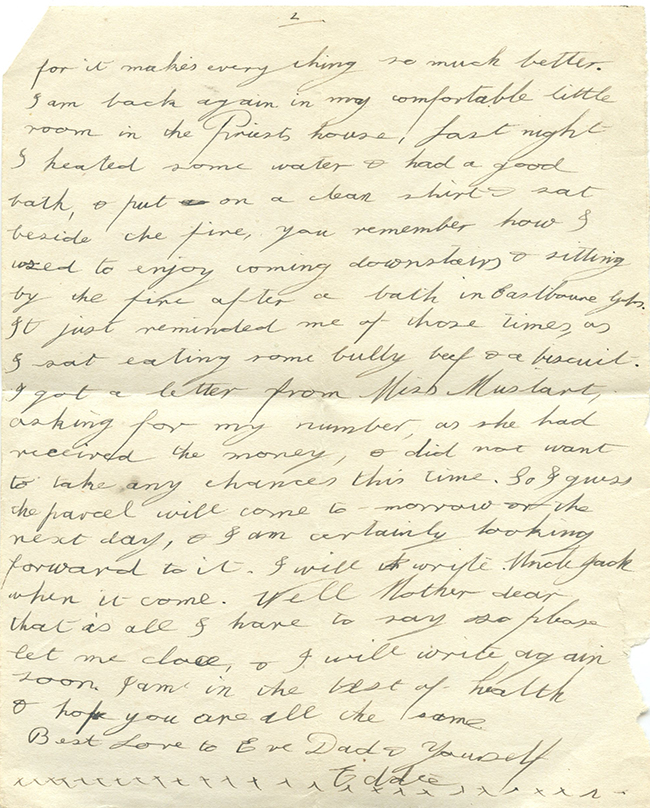 2
for it makes every thing so much better.
I am back again in my comfortable little
room in the Priests house, last night
I heated some water & had a good
bath, & put on a clean shirt & sat
beside the fire, you remember how I
used to enjoy coming downstairs & sitting
by the fire after a bath in Eastbourne Gdns.
It just reminded me of those times, as
I sat eating some bully beef & a biscuit.
I got a letter from Miss Mustart,
asking for my number, as she had
received the money, & did not want
to take any chances this time. So I guess
the parcel will come to-morrow or the
next day, & I am certainly looking
forward to it. I will write Uncle Jack
when it come. Well Mother dear
that is all I have to say so please
let me close, & I will write again
soon. I am in the best of health
& hope you are all the same
Best Love to Eve Dad & Yourself
Eddie
x x x x x x x x x x x x x x x x x x x x x x